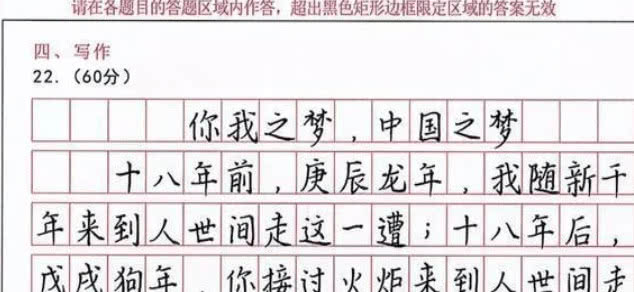 请在各题目的答题区域内作答，超出黑色矩形边框限定区域的答案无效
四、写作
22.（60分）
你我之梦，中国之梦
十八年前，庚辰龙年，我随新千
年来到人世间走这一遭；十八年后，
戊戌狗年，你接过火炬来到人世间走